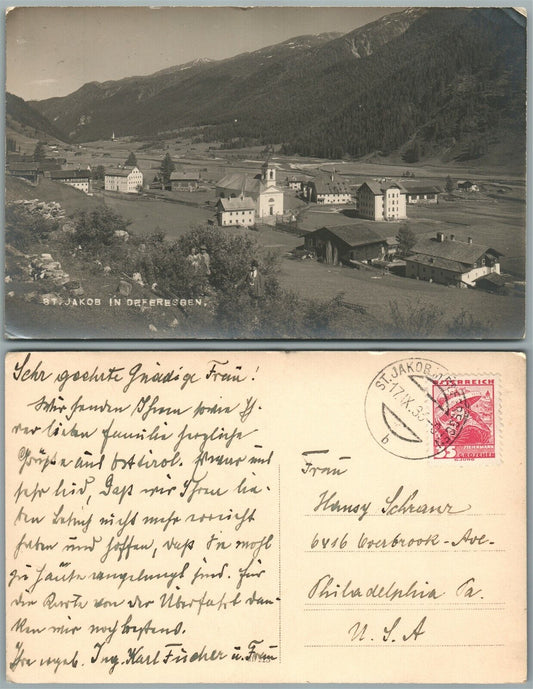 ST. JAKOB IN DEFEREGGEN.
Sehr geehrte Gnädige Frau!
Wir senden Ihnen sowie Ih-
rer lieben Familie herzliche
Grüße aus Osttirol. Es war uns
sehr leid, daß wir Ihren lie-
ben Besuch nicht mehr erreicht
haben und hoffen, daß Sie wohl
zu Hause angelangt sind. Für
die Karte von der Überfahrt dan-
ken wir noch bestens.
Ihre ergeb. Ing. Karl Fischer u. Frau
ST. JAKOB
17.IX.35
b
ÖSTERREICH
35
GROSCHEN
Frau
Hansy Schranz
6416 Overbrook-Ave-
Philadelphia Pa.
U.S.A